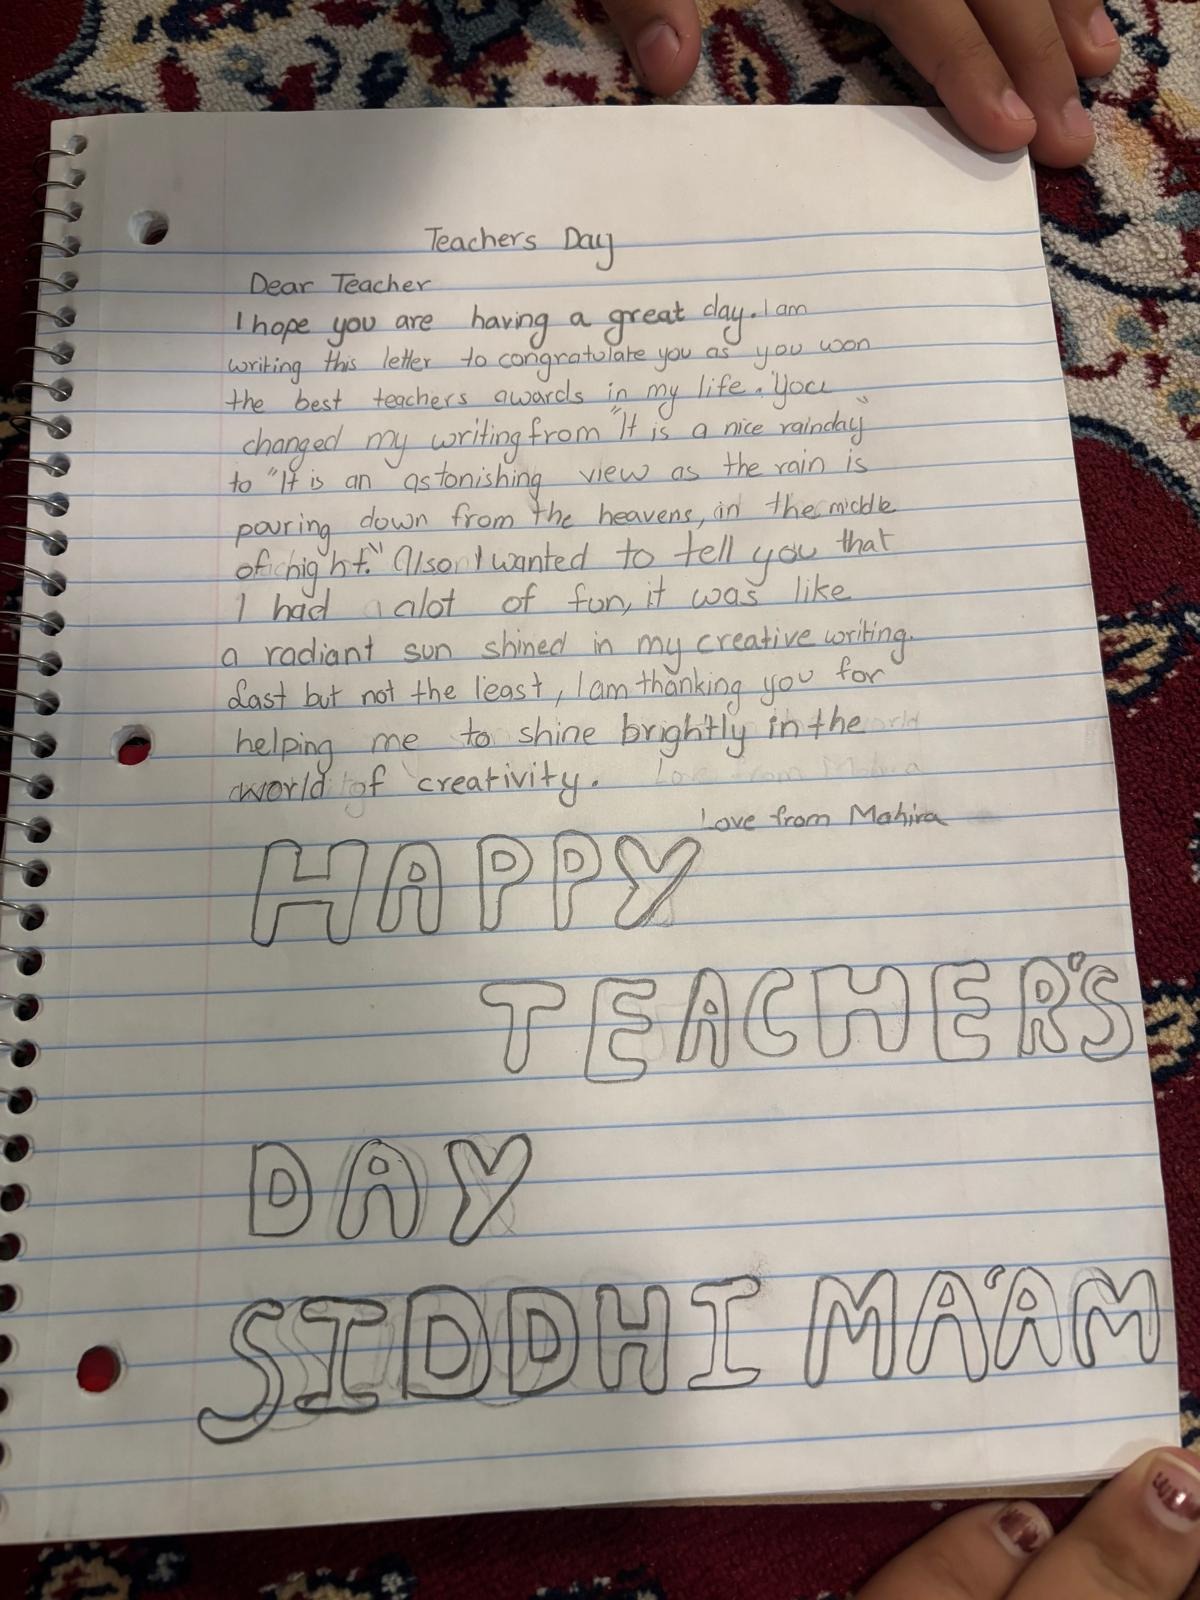 Teachers Day
Dear Teacher
I hope you are having a great day. I am
writing this letter to congratulate you as you won
the best teachers awards in my life. You
changed my writing from "It is a nice rainday"
to "It is an astonishing view as the rain is
pouring down from the heavens, in the middle
of night." Also I wanted to tell you that
I had alot of fun, it was like
a radiant sun shined in my creative writing.
Last but not the least, I am thanking you for
helping me to shine brightly in the
world of creativity.
Love from Mahira
HAPPY
TEACHER'S
DAY
SIDDHI MA'AM